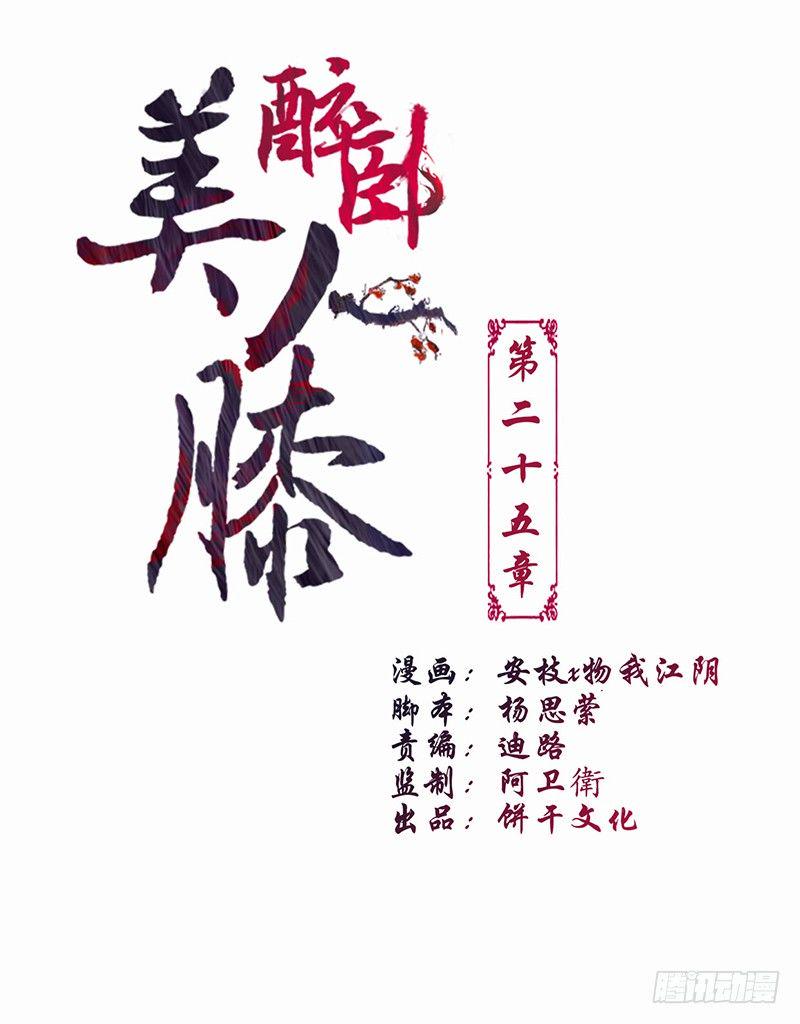 醉卧
美人
膝
第二十五章
漫画：安枝x物我江阴
脚本：杨思萦
责编：迪路
监制：阿卫衛
出品：饼干文化
腾讯动漫